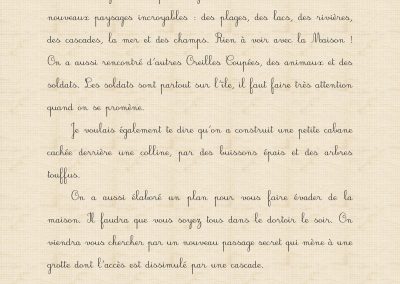 nouveaux paysages incroyables : des plages, des lacs, des rivières,
des cascades, la mer et des champs. Rien à voir avec la Maison !
On a aussi rencontré d'autres Oreilles Coupées, des animaux et des
soldats. Les soldats sont partout sur l'île, il faut faire très attention
quand on se promène.
Je voulais également te dire qu'on a construit une petite cabane
cachée derrière une colline, par des buissons épais et des arbres
touffus.
On a aussi élaboré un plan pour vous faire évader de la
maison. Il faudra que vous soyez tous dans le dortoir le soir. On
viendra vous chercher par un nouveau passage secret qui mène à une
grotte dont l'accès est dissimulé par une cascade.